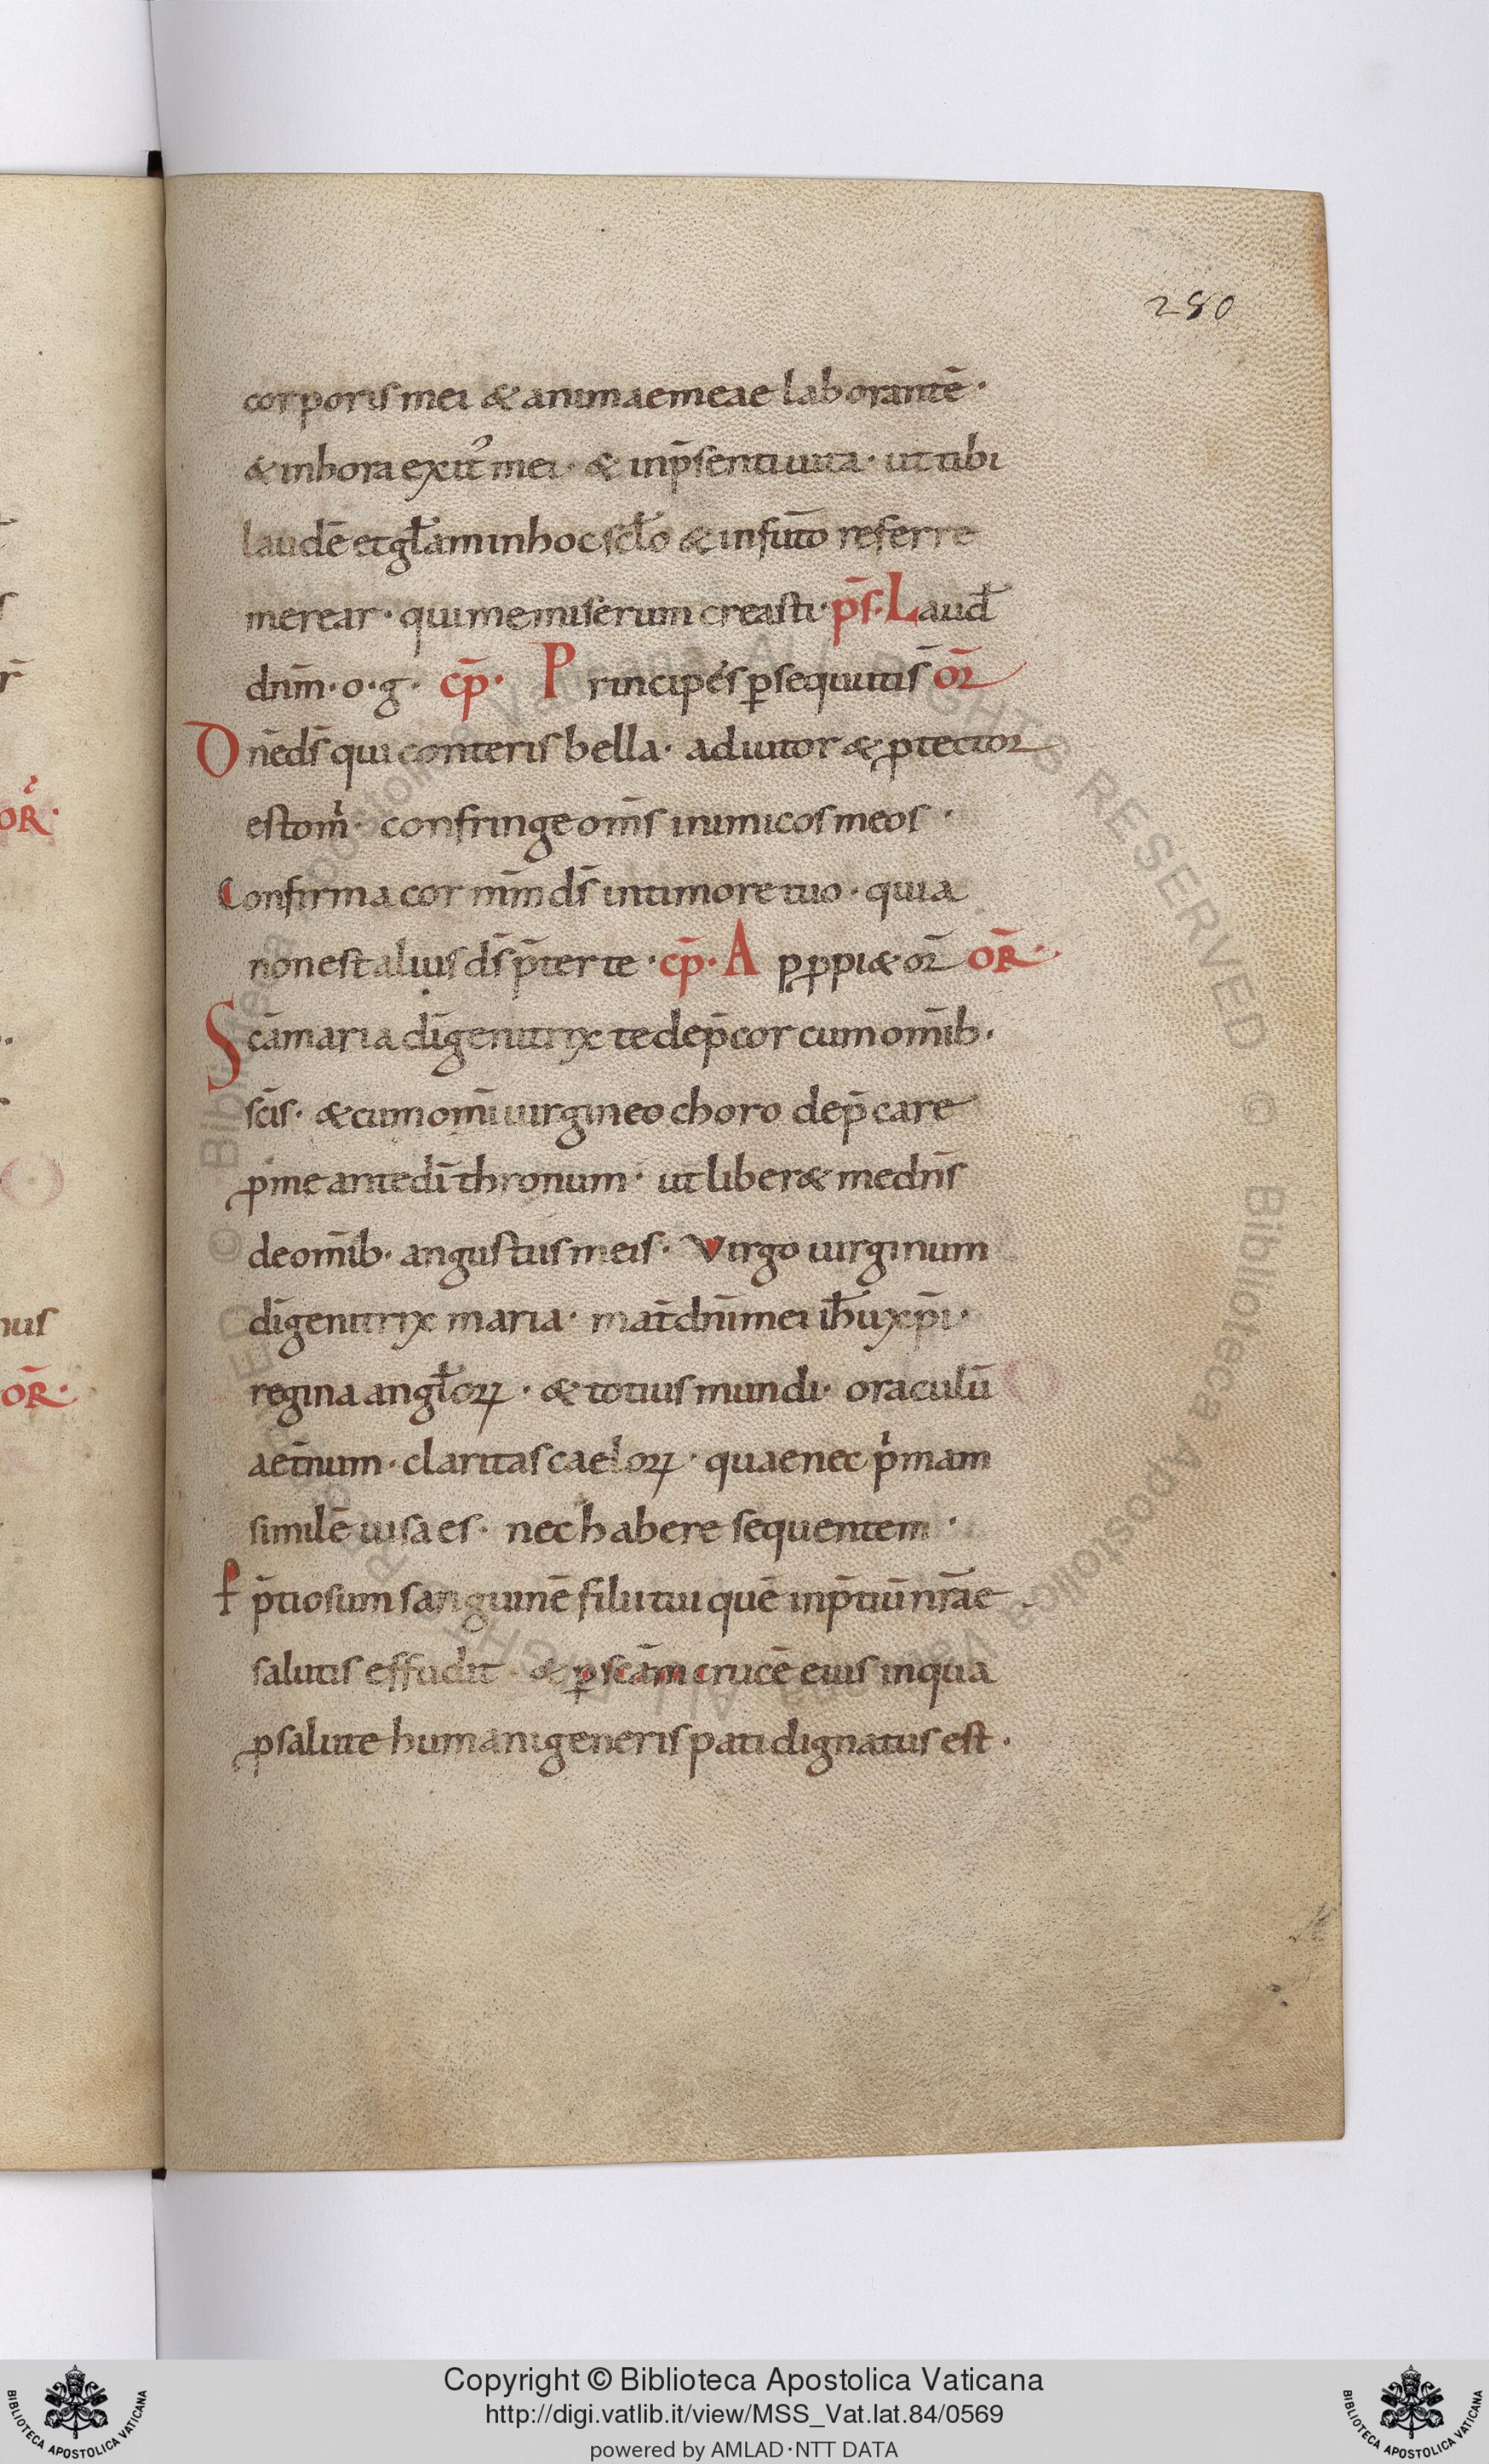 280
corporis mei & animae meae laborantē ·
& in hora exit᾽ mei · & in p̄senti uita · ut tibi
laudē et gl̄am in hoc scl̄o & in fut̄o referre
merear · qui me miserum creasti · ps̄ · Laud̄
dn̄m · o · g · cp̄ · Principes ꝑsequuti s̄ or̄
Dn̄e ds̄ qui conteris bella · adiutor & ꝓtector
esto m̉ · confringe om̄s inimicos meos ·
Confirma cor m̄m ds̄ in timore tuo · quia
non est alius ds̄ p̄ter te · cp̄ · Appꝓpi& or̄ or̄ ·
Sc̄a maria dī genitrix te dep̄cor cum om̄ib ·
sc̄is · & cum om̄i uirgineo choro dep̄care
ꝓ me ante dī thronum · ut liber& me dn̄s
de om̄ib · angustiis meis · Virgo uirginum
dī genitrix maria · mat̄ dn̄i mei ih̄u xp̄i ·
regina angl̄oꝝ · & totius mundi · oraculū
aet̄num · claritas caeloꝝ · quae nec pͥmam
similē uisa es · nec habere sequentem ·
P p̄tiosum sanguinē filii tui quē in p̄tiū nr̄ae
salutis effudit · & ꝑ sc̄am crucē eius in qua
ꝓ salute humani generis pati dignatus est ·
r̄
or̉ ·
nus
or̄ ·
© Biblioteca Apostolica Vaticana ALL RIGHTS RESERVED © Biblioteca Apostolica Vaticana ALL RIGHTS RESERVED
Copyright © Biblioteca Apostolica Vaticana
http://digi.vatlib.it/view/MSS_Vat.lat.84/0569
powered by AMLAD·NTT DATA
BIBLIOTECA APOSTOLICA VATICANA
BIBLIOTECA APOSTOLICA VATICANA